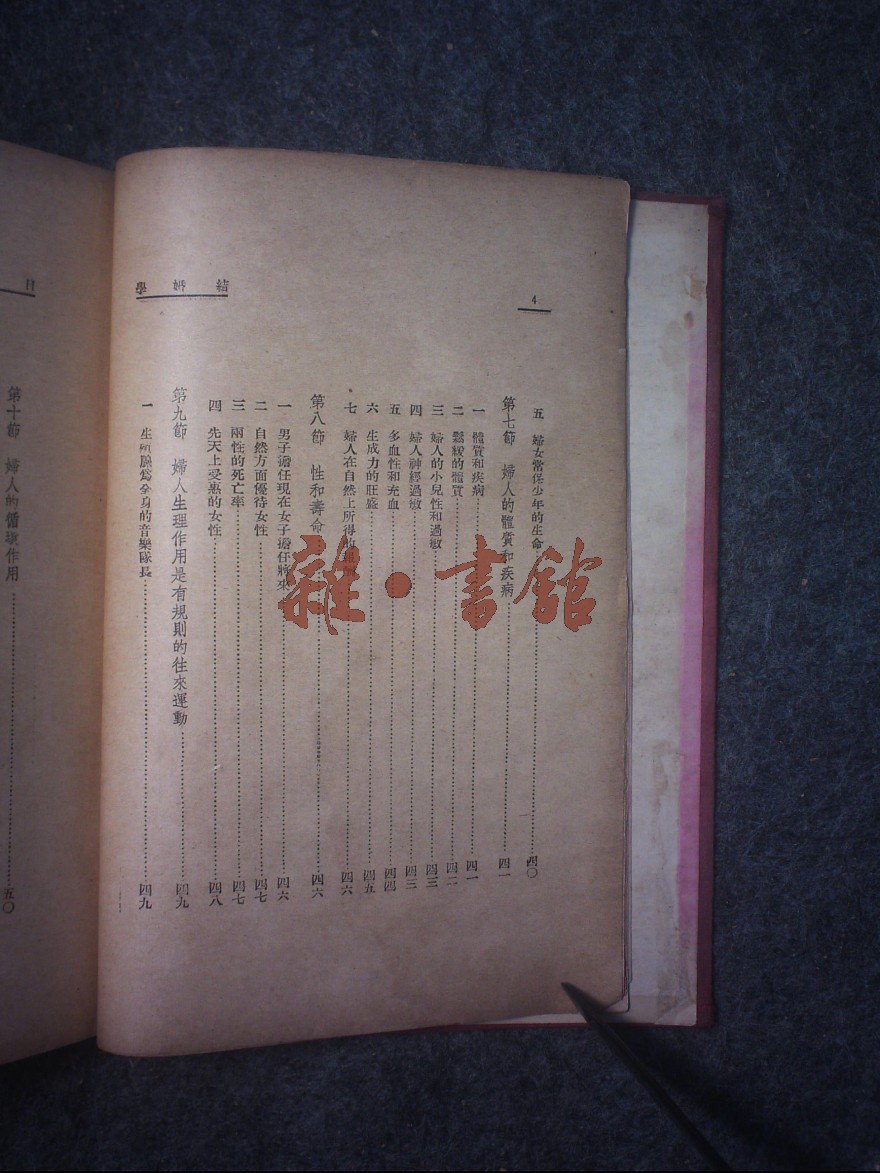 4
學 婚 結
五 婦女常保少年的生命 四〇
第七節 婦人的體質和疾病 四一
一 體質和疾病 四一
二 鬆緩的體質 四二
三 婦人的小兒性和過敏 四三
四 婦人神經過敏 四三
五 多血性和充血 四四
六 生成力的旺盛 四五
七 婦人在自然上所得的 四六
第八節 性和壽命 四六
一 男子擔任現在女子擔任將來 四六
二 自然方面優待女性 四七
三 兩性的死亡率 四七
四 先天上受惠的女性 四八
第九節 婦人生理作用是有規則的往來運動 四九
一 生殖腺爲全身的音樂隊長 四九
目
第十節 婦人的循環作用 五〇
雜·書館